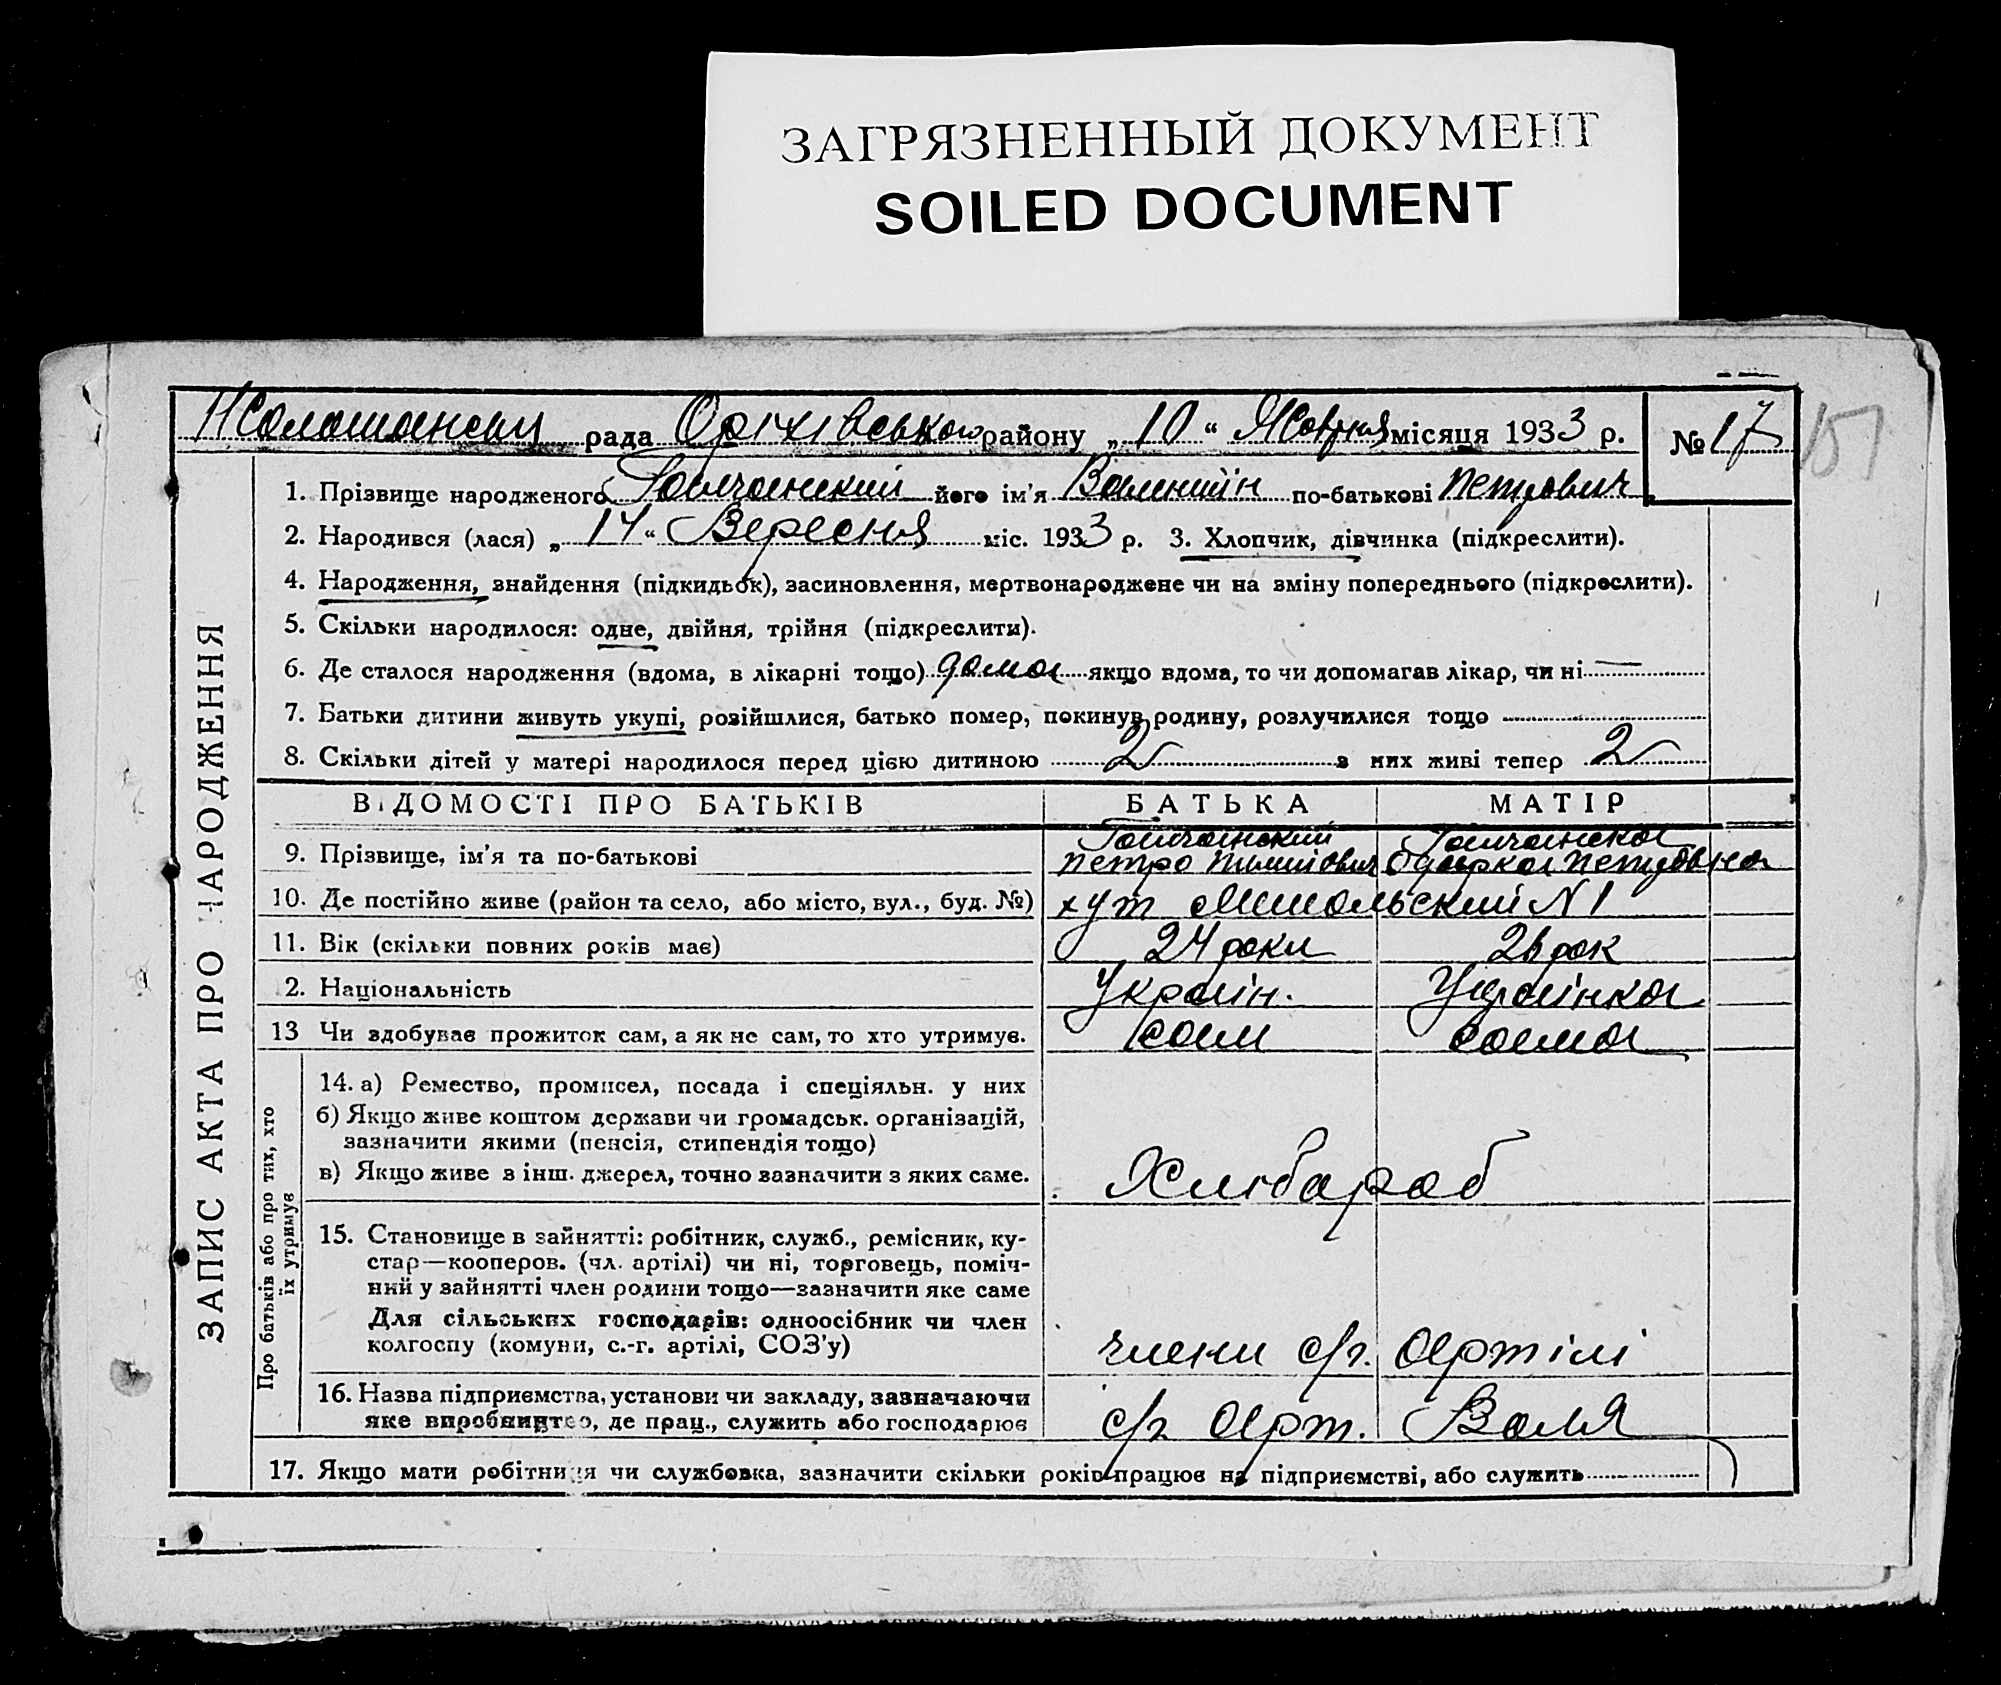 ЗАГРЯЗНЕННЫЙ ДОКУМЕНТ
SOILED DOCUMENT
рада Оріхівського району „ 10 “ Жовтня місяця 1933 р. № 17
151
1. Прізвище народженого його ім'я по-батькові Петрович
2. Народився (лася) „ 14 “ Вересня міс. 1933 р. 3. Хлопчик, дівчинка (підкреслити).
4. Народження, знайдення (підкидьок), засиновлення, мертвонароджене чи на зміну попереднього (підкреслити).
5. Скільки народилося: одне, двійня, трійня (підкреслити).
6. Де сталося народження (вдома, в лікарні тощо) дома якщо вдома, то чи допомагав лікар, чи ні —
7. Батьки дитини живуть укупі, розійшлися, батько помер, покинув родину, розлучилися тощо
8. Скільки дітей у матері народилося перед цією дитиною 2 з них живі тепер 2
ЗАПИС АКТА ПРО НАРОДЖЕННЯ
ВІДОМОСТІ ПРО БАТЬКІВ БАТЬКА МАТІР
9. Прізвище, ім'я та по-батькові Петро Петровна
10. Де постійно живе (район та село, або місто, вул., буд. №) хут N 1
11. Вік (скільки повних років має) 24 роки 26 рок
2. Національність Україн. Українка
13 Чи здобуває прожиток сам, а як не сам, то хто утримує. сам сама
Про батьків або про тих, хто
їх утримує
14. а) Ремество, промисел, посада і спеціяльн. у них
б) Якщо живе коштом держави чи громадськ. організацій,
зазначити якими (пенсія, стипендія тощо)
в) Якщо живе з інш. джерел, точно зазначити з яких саме. Хлібароб
15. Становище в зайнятті: робітник, служб., ремісник, ку-
стар—кооперов. (чл. артілі) чи ні, торговець, поміч-
ний у зайнятті член родини тощо—зазначити яке саме
Для сільських господарів: одноосібник чи член
колгоспу (комуни, с.-г. артілі, СОЗ'у) члени с/г. артілі
16. Назва підприємства, установи чи закладу, зазначаючи
яке виробництво, де прац., служить або господарює с/г арт. Воля
17. Якщо мати робітниця чи службовка, зазначити скільки років працює на підприємстві, або служить